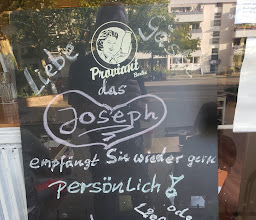 Liebe Gäste
Proviant
Berlin
das
Joseph
empfängt Sie wieder gern
persönlich!
oder